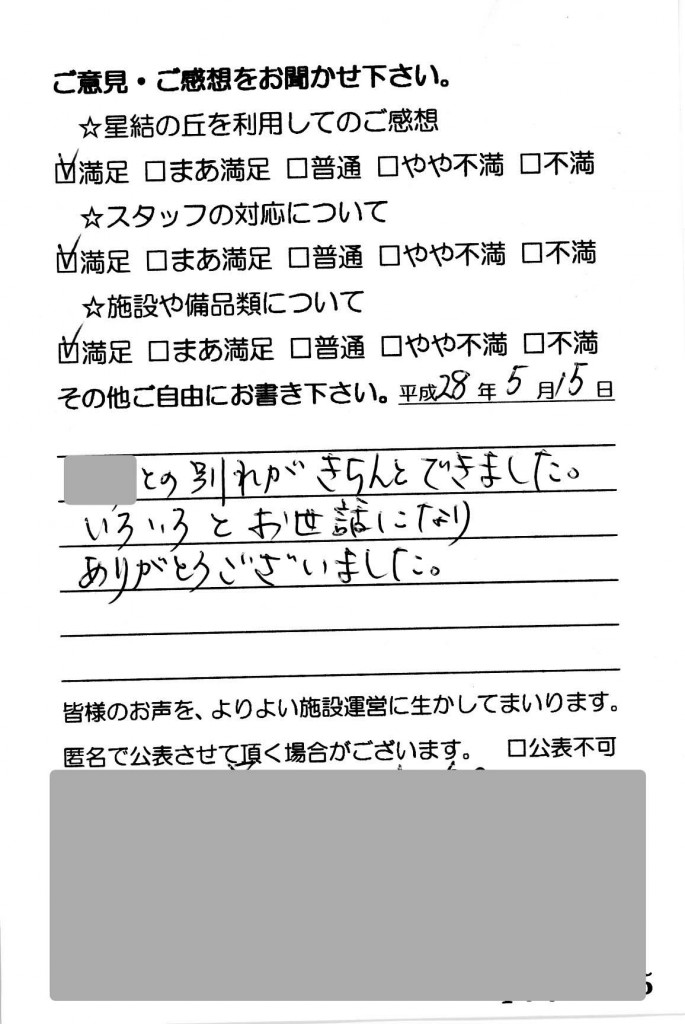 ご意見・ご感想をお聞かせ下さい。
☆星結の丘を利用してのご感想
☑満足 □まあ満足 □普通 □やや不満 □不満
☆スタッフの対応について
☑満足 □まあ満足 □普通 □やや不満 □不満
☆施設や備品類について
☑満足 □まあ満足 □普通 □やや不満 □不満
その他ご自由にお書き下さい。平成28年5月15日
との別れがきちんとできました。
いろいろとお世話になり
ありがとうございました。
皆様のお声を、よりよい施設運営に生かしてまいります。
匿名で公表させて頂く場合がございます。 □公表不可